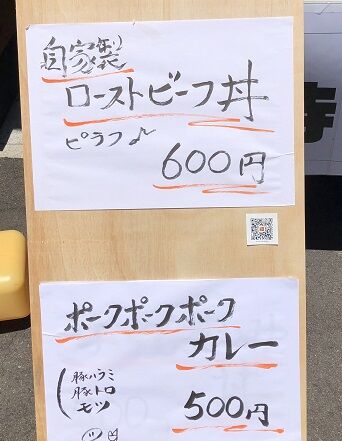 自家製
ローストビーフ丼
ピラフ♪
600円
ポークポークポーク
カレー
豚ハラミ
豚トロ
モツ
500円